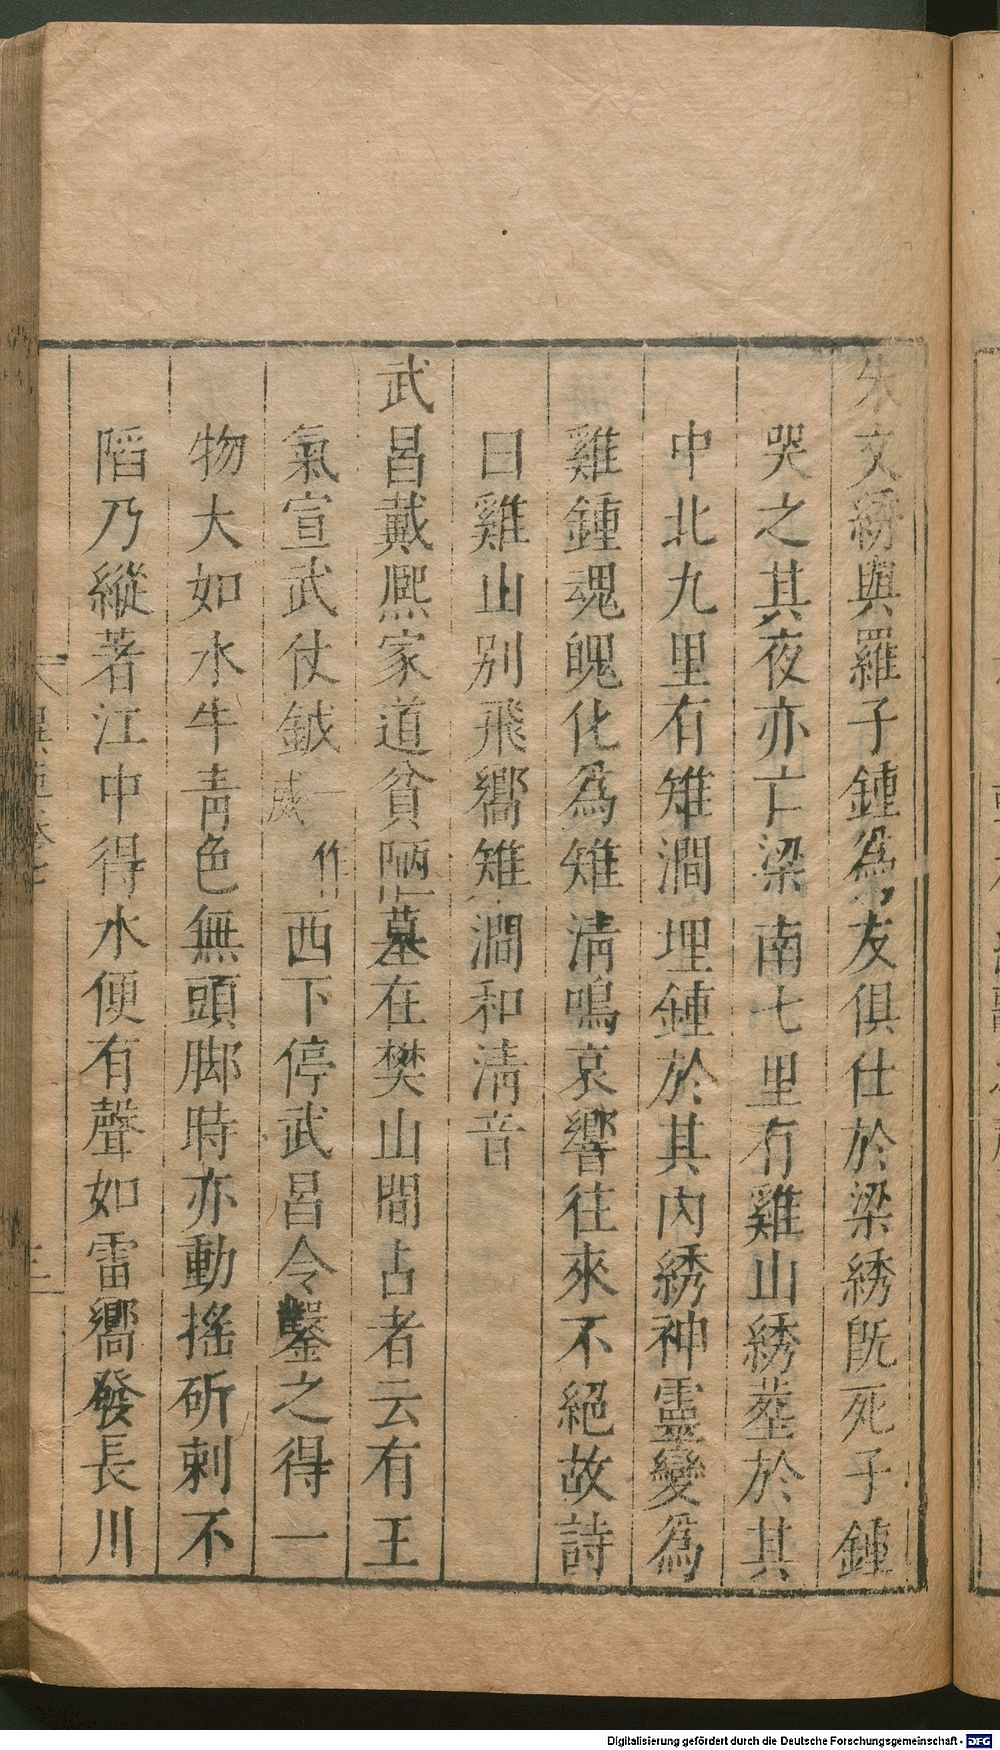 朱文綉與羅子鍾爲友俱仕於梁綉旣死子鍾
哭之其夜亦亡梁南七里有雞山綉塟於其
中北九里有雉澗埋鍾於其内綉神靈變爲
雞鍾魂魄化爲雉淸鳴哀響往來不絕故詩
曰雞山别飛嚮雉澗和淸音
武昌戴熈家道貧陋墓在樊山間占者云有王
氣宣武仗鉞一作西下停武昌令鑿之得一
物大如水牛靑色無頭脚時亦動搖斫刺不
陷乃縱著江中得水便有聲如雷嚮發長川
Digitalisierung gefördert durch die Deutsche Forschungsgemeinschaft - DFG